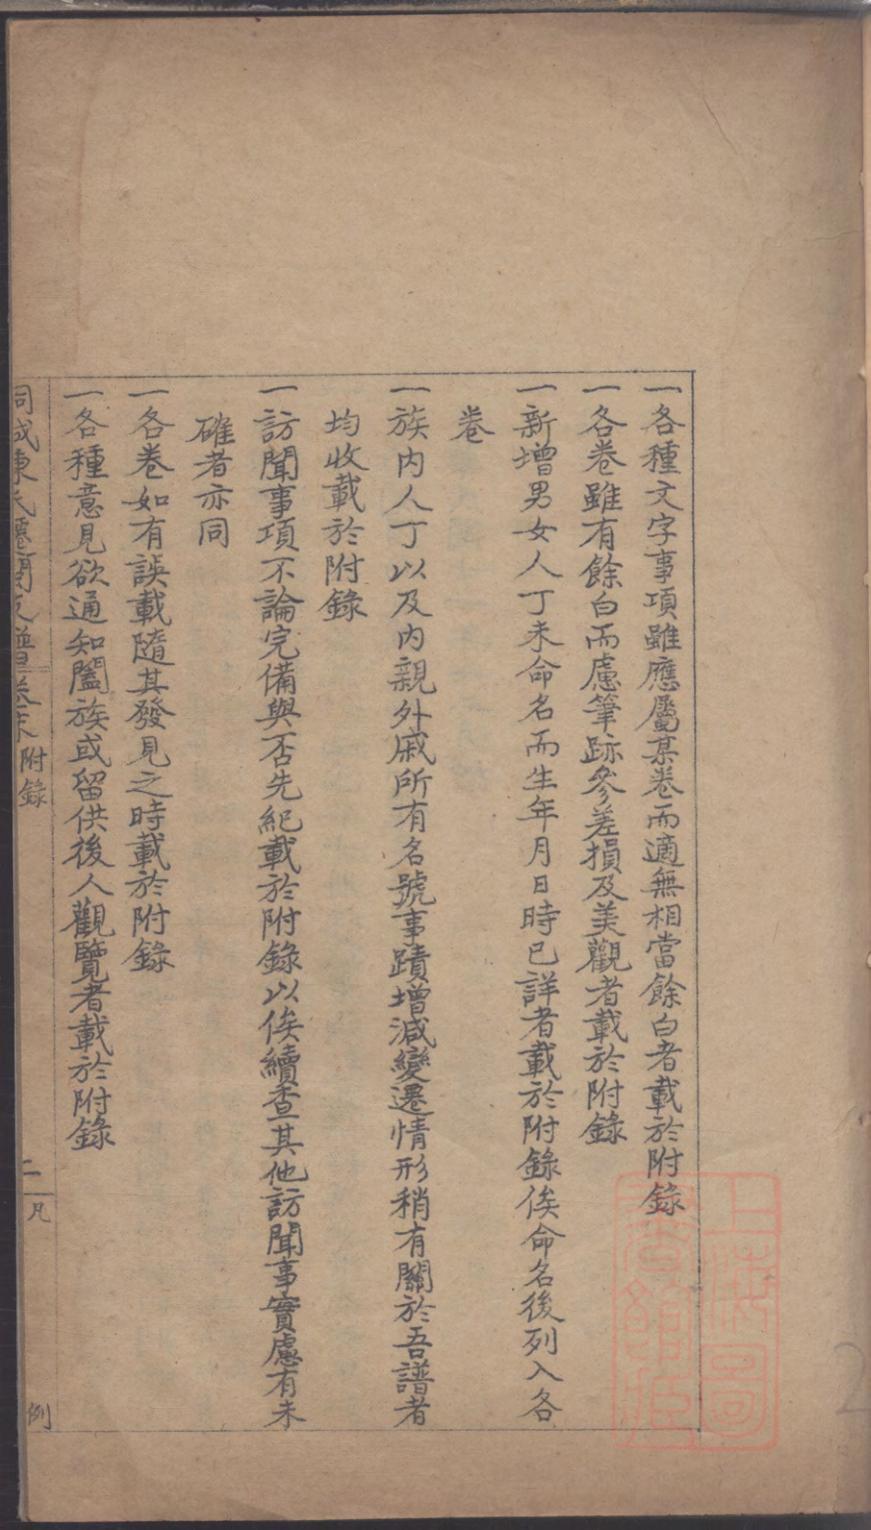 一各種文字事項雖應屬某卷而適無相當餘白者載於附錄
一各卷雖有餘白而慮筆跡參差損及美觀者載於附錄
一新增男女人丁未命名而生年月日時已詳者載於附錄俟命名後列入各
卷
一族內人丁以及內親外戚所有名號事蹟增減變遷情形稍有關於吾譜者
均收載於附錄
一訪聞事項不論完備與否先紀載於附錄以俟續查其他訪聞事實慮有未
確者亦同
一各卷如有誤載隨其發見之時載於附錄
一各種意見欲通知闔族或留供後人觀覽者載於附錄
附錄
二
凡例
上海圖
書館藏
2